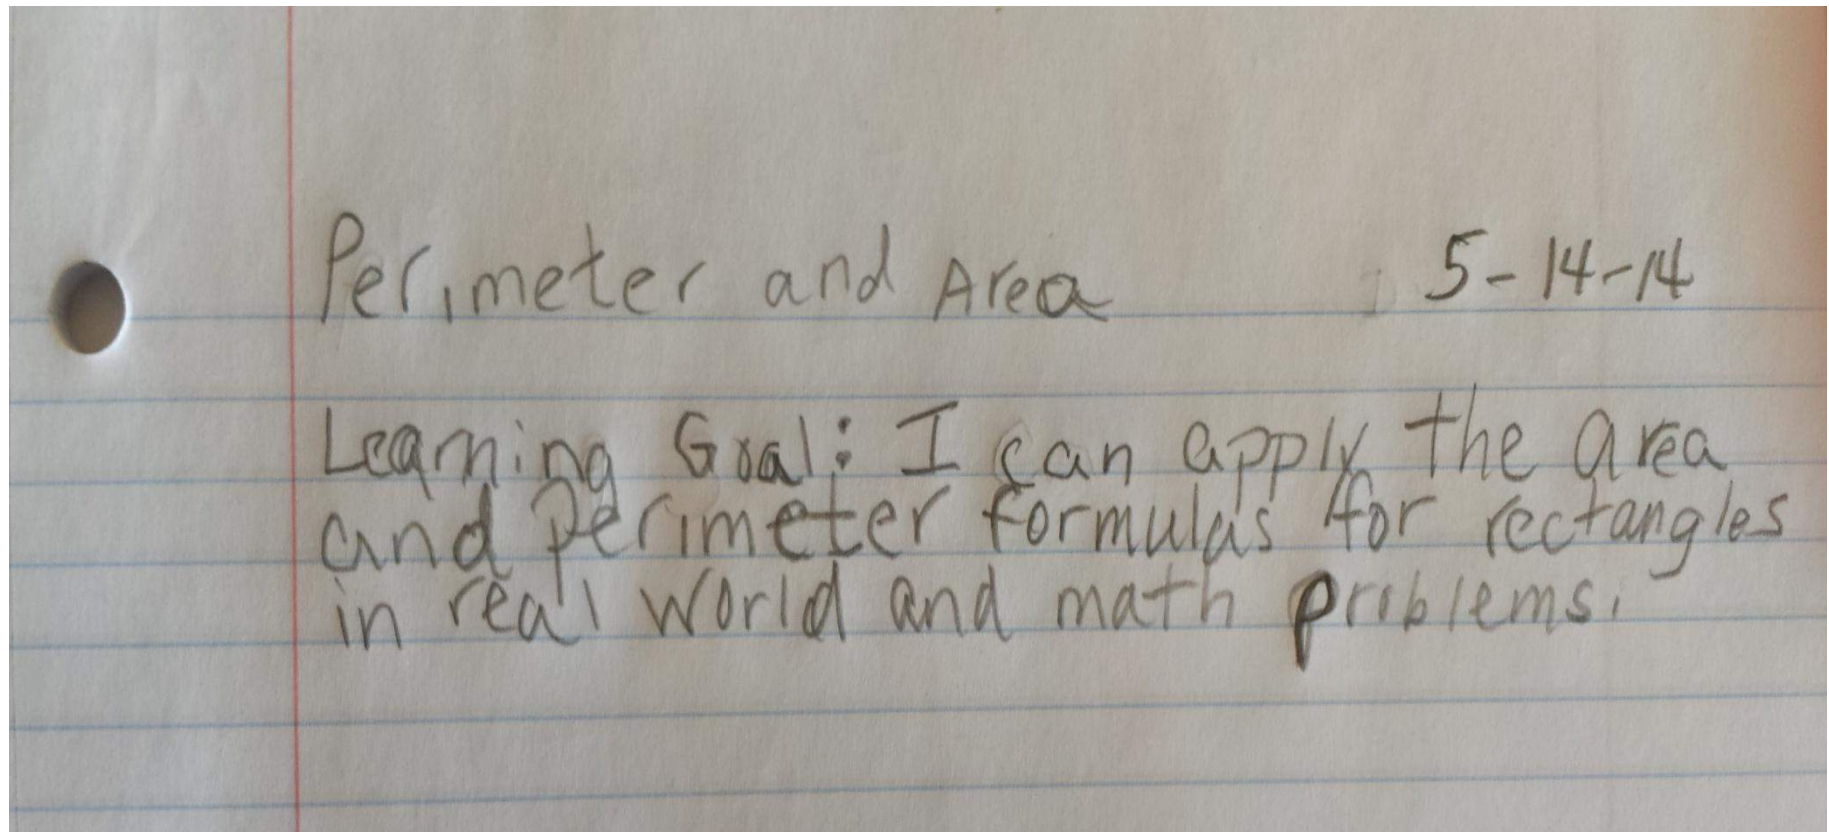 Perimeter and Area 5-14-14
Learning Goal: I can apply the area
and perimeter formulas for rectangles
in real world and math problems.